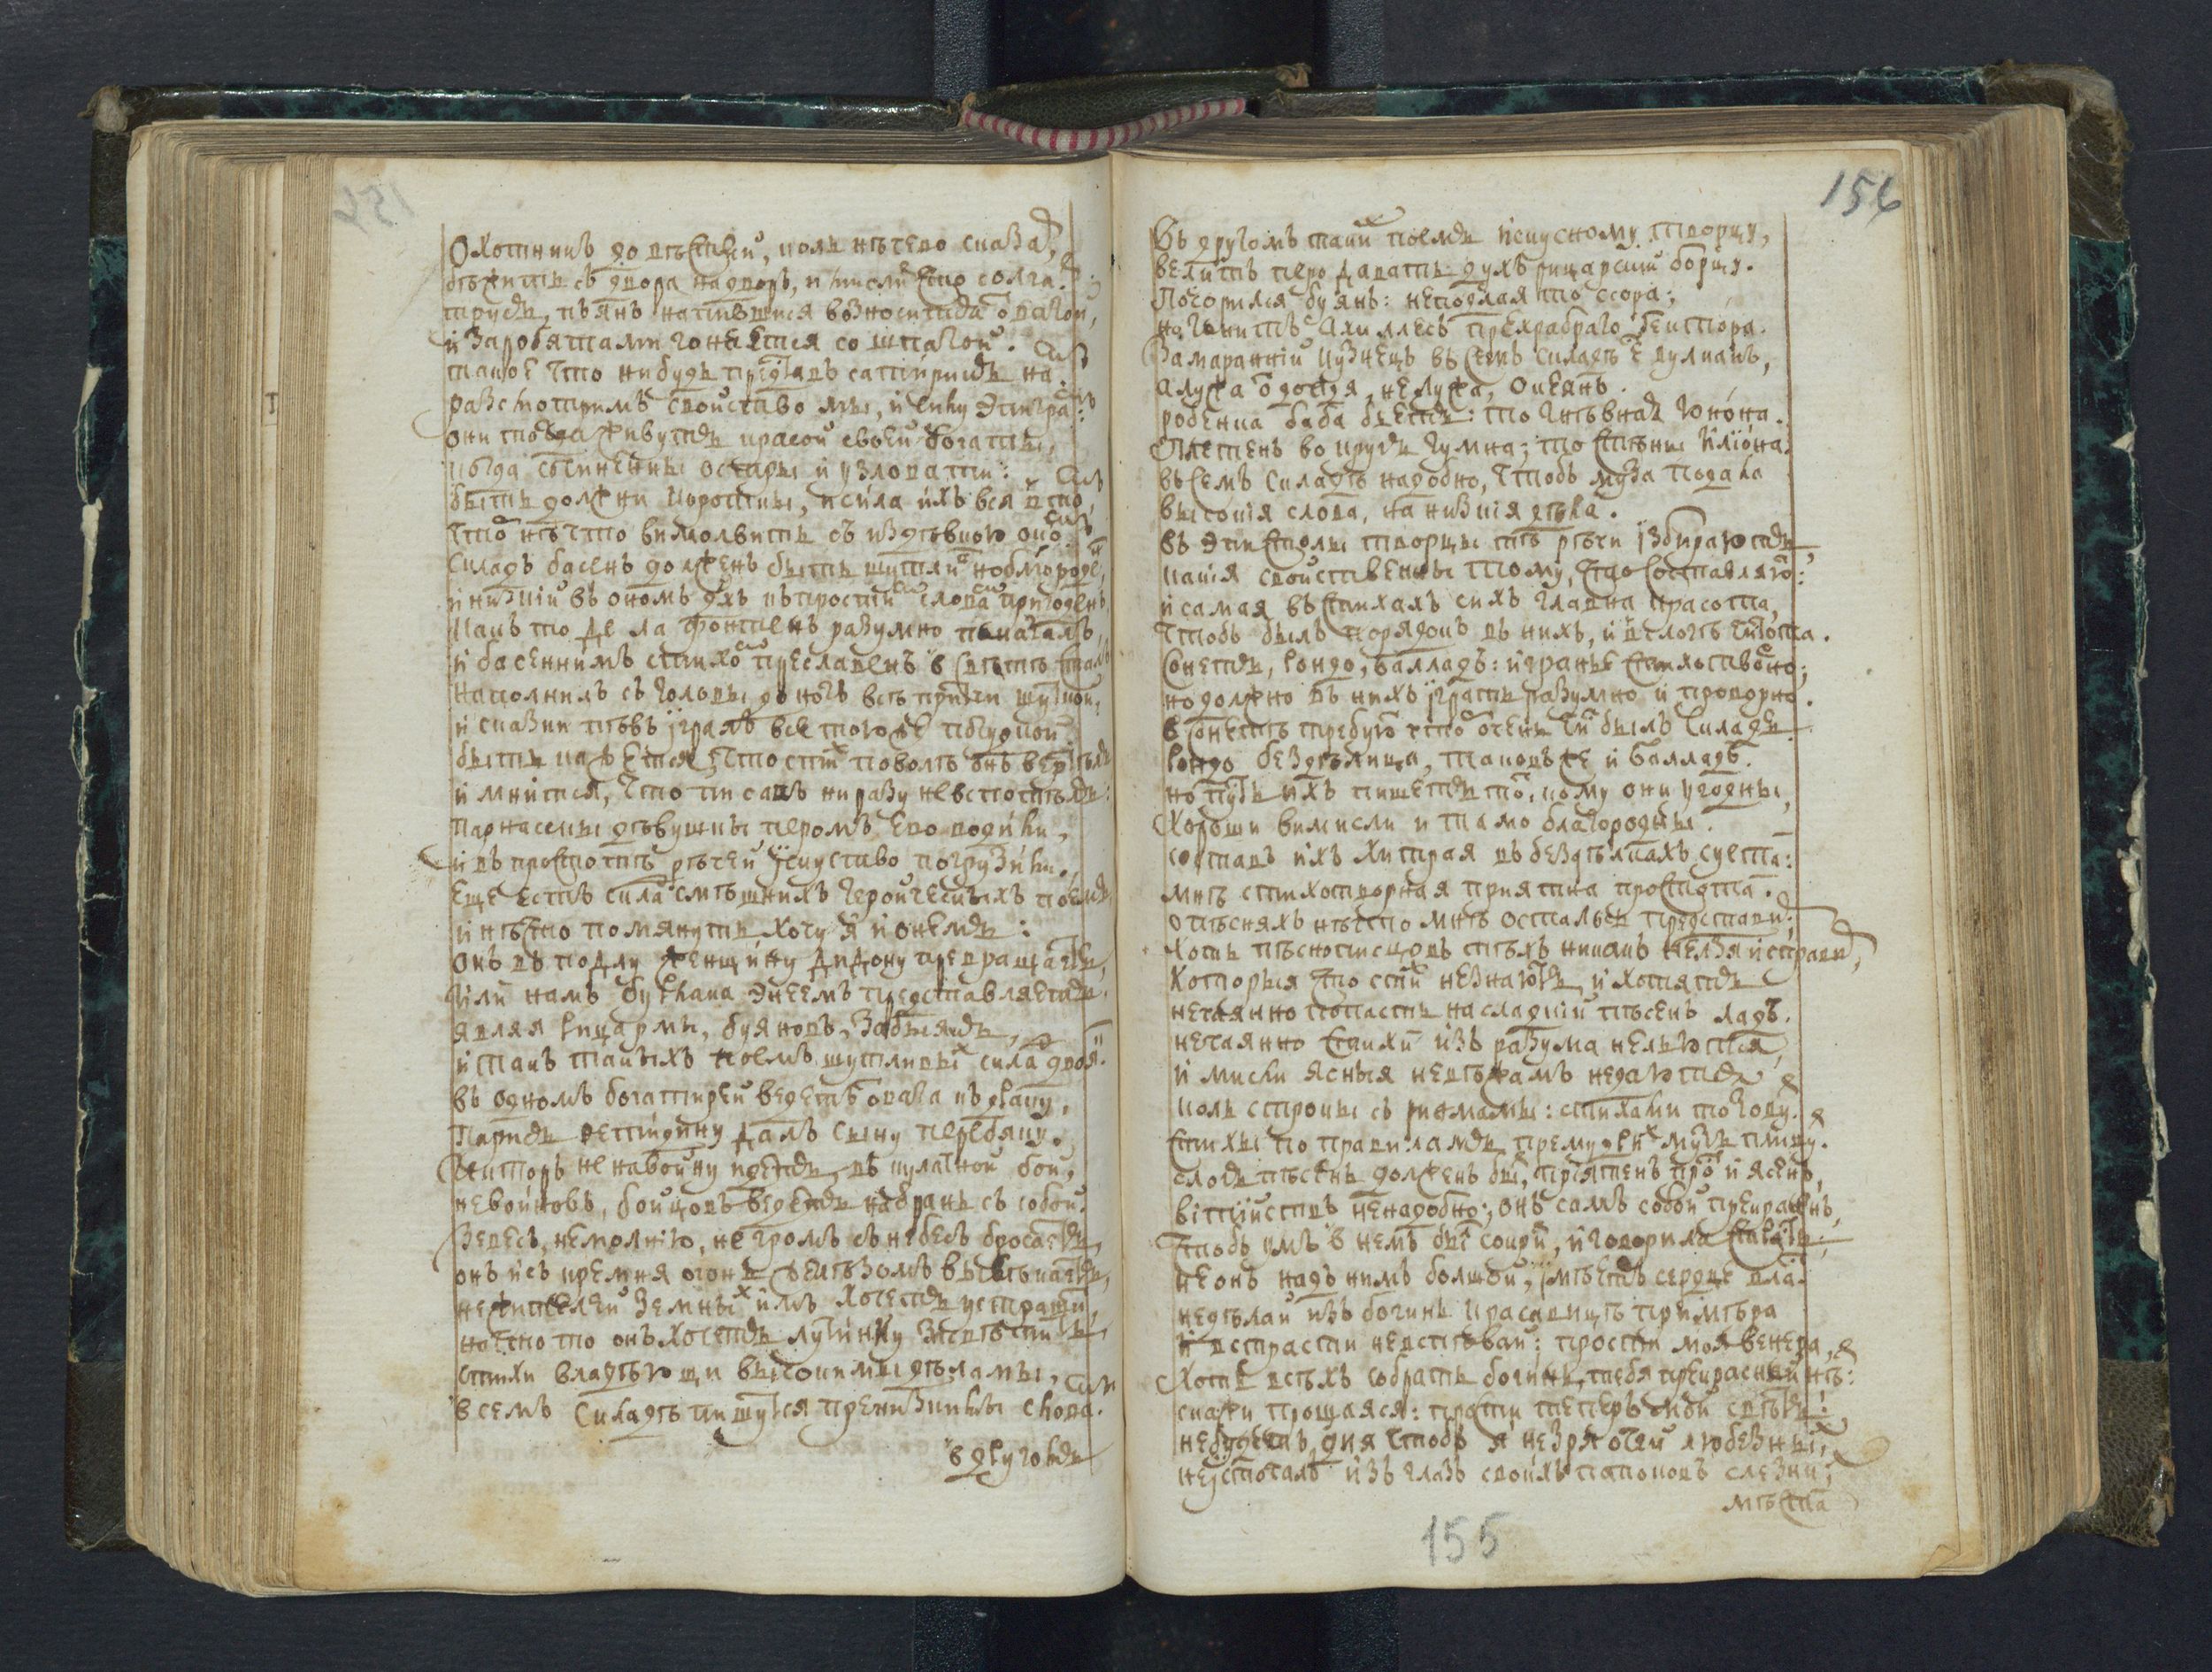 Охотникъ до вѣстей, коль нѣчево сказа,
бѣжитъ съ двора надворъ, и мысли что солга.
трусъ, пьянъ напившися возноситца отвагой,
и за робятами гоняется со шпагой.
такое что нибудь представъ сатирикъ на.
разсмотримъ свойство мы, и силу эпигра:
они тогда живутъ красой своей богаты,
когда сочинены остры и узловати:
быть должни коротки, и сила ихъ вся в то,
что нѣчто вимолвить съ издѣвкою око.
Складъ басенъ долженъ быть шутлив но благороде,
и низкій въ ономъ духъ къ простим словам пригоденъ,
Какъ то де ла Фонтенъ разумно показалъ,
и басеннимъ стихом преславенъ в свѣтѣ сталъ
наполнилъ съ головы до ногъ всѣ притчи шуткой,
и сказки пѣвъ игралъ все тою же погудкой.
быть кажется, что стих поволѣ онъ вертѣлъ
и мнится, что писавъ ни разу невспотѣлъ:
парнаскы дѣвушкы перомъ ево водили,
и въ простотѣ рѣчей искуство погрузили.
Еще есть складъ смѣшнихъ геройческихъ поемъ,
и нѣчто помянуть хочу я и онемъ:
онъ въ подлу женщину Дидону превращаетъ,
Или намъ бурлака Энеемъ представляетъ,
являя рицармы, буяновъ, забыякъ,
и такъ такихъ поемъ шутливых склад двоя.
въ одномъ богатирей ведетъ отвага въ драку,
Паридъ Фетидину далъ сыну перебяку.
Гекторъ не навойну идетъ, въ кулачной бой,
невойновъ, бойцовъ ведетъ на брань съ собой.
Зевесъ, немолнію, не громъ съ небесъ бросаетъ,
онъ исъ кремня огонь желѣзомъ высѣкаетъ,
нежителей земных имъ хочетъ устраши,
на что то онъ хочетъ лучинку засвѣтить,
стихи владѣющи высокими дѣламы,
в семъ складѣ пишутся пренизкими слова.
в другомъ
154
156
Въ другомъ такий поемъ искусному творцу,
велитъ перо давать духъ рицарский борцу.
Посорился буянъ: неподлая то ссора;
но гонитъ Ахиллесъ прехрабраго Гектора.
Замараннiй кузнецъ въ семъ складѣ е вулканъ,
а лужа от дождя, не лужа, Океянъ.
робенка баба бьетъ: то гнѣвная Юнона.
Плетень во кругъ гумна; то стѣны Иліона.
въ семъ складѣ надобно, чтобъ муза подала
высокія слова, на низкія дѣла.
въ эпистолы творцы тѣ рѣчи избираютъ,
какія свойственны тому, что составляю:
и самая въ стихахъ сихъ главна красота,
чтобъ былъ порядокъ въ нихъ, и в слогѣ чистота.
Сонетъ, рондо, балладъ: игранье стихотворно;
но должно въ нихъ играть разумно и проворно.
в сонетѣ требую что очень чист былъ складъ.
рондо бездѣлица, таковъ же и балладъ.
но пусть ихъ пишетъ тот, кому они угодны,
Хороши вимисли и тамо благородны.
составъ ихъ хитрая въ бездѣлкахъ суета:
мнѣ стихотворная приятна простота.
о пѣсняхъ нѣчто мнѣ осталось представи;
хоть пѣснописцовъ тѣхъ никакъ нелзя исправи,
Которыя что стих незнаютъ, и хотятъ
нечаянно попасть насладкiй пѣсенъ ладъ.
нечаянно стихи изъ разума нельются,
и мисли ясныя невѣжамъ недаютца
коль строки съ риѳмамы: стихами то зову.
стихы по правиламъ премудрых музъ пливу.
слогъ пѣсень долженъ бы, приятенъ прост и ясенъ,
вітийствъ ненадобно; онъ самъ собой прекрасенъ,
чтобъ умъ в немъ был сокри, и говорила страсть;
неонъ надъ нимъ болшой, имѣетъ сердце вла.
недѣлай изъ богинь красавицѣ примѣра
и встрасти невспѣвай: прости моя венера,
Хоть всѣхъ собрать богинь, тебя прекраснѣй нѣ:
скажи прощаяся: прости теперь мой свѣтъ:
небудетъ дня чтобъ я незря очей любезныі,
неисточалъ изъ глазъ своихъ потоковъ слезни;
мѣста
155